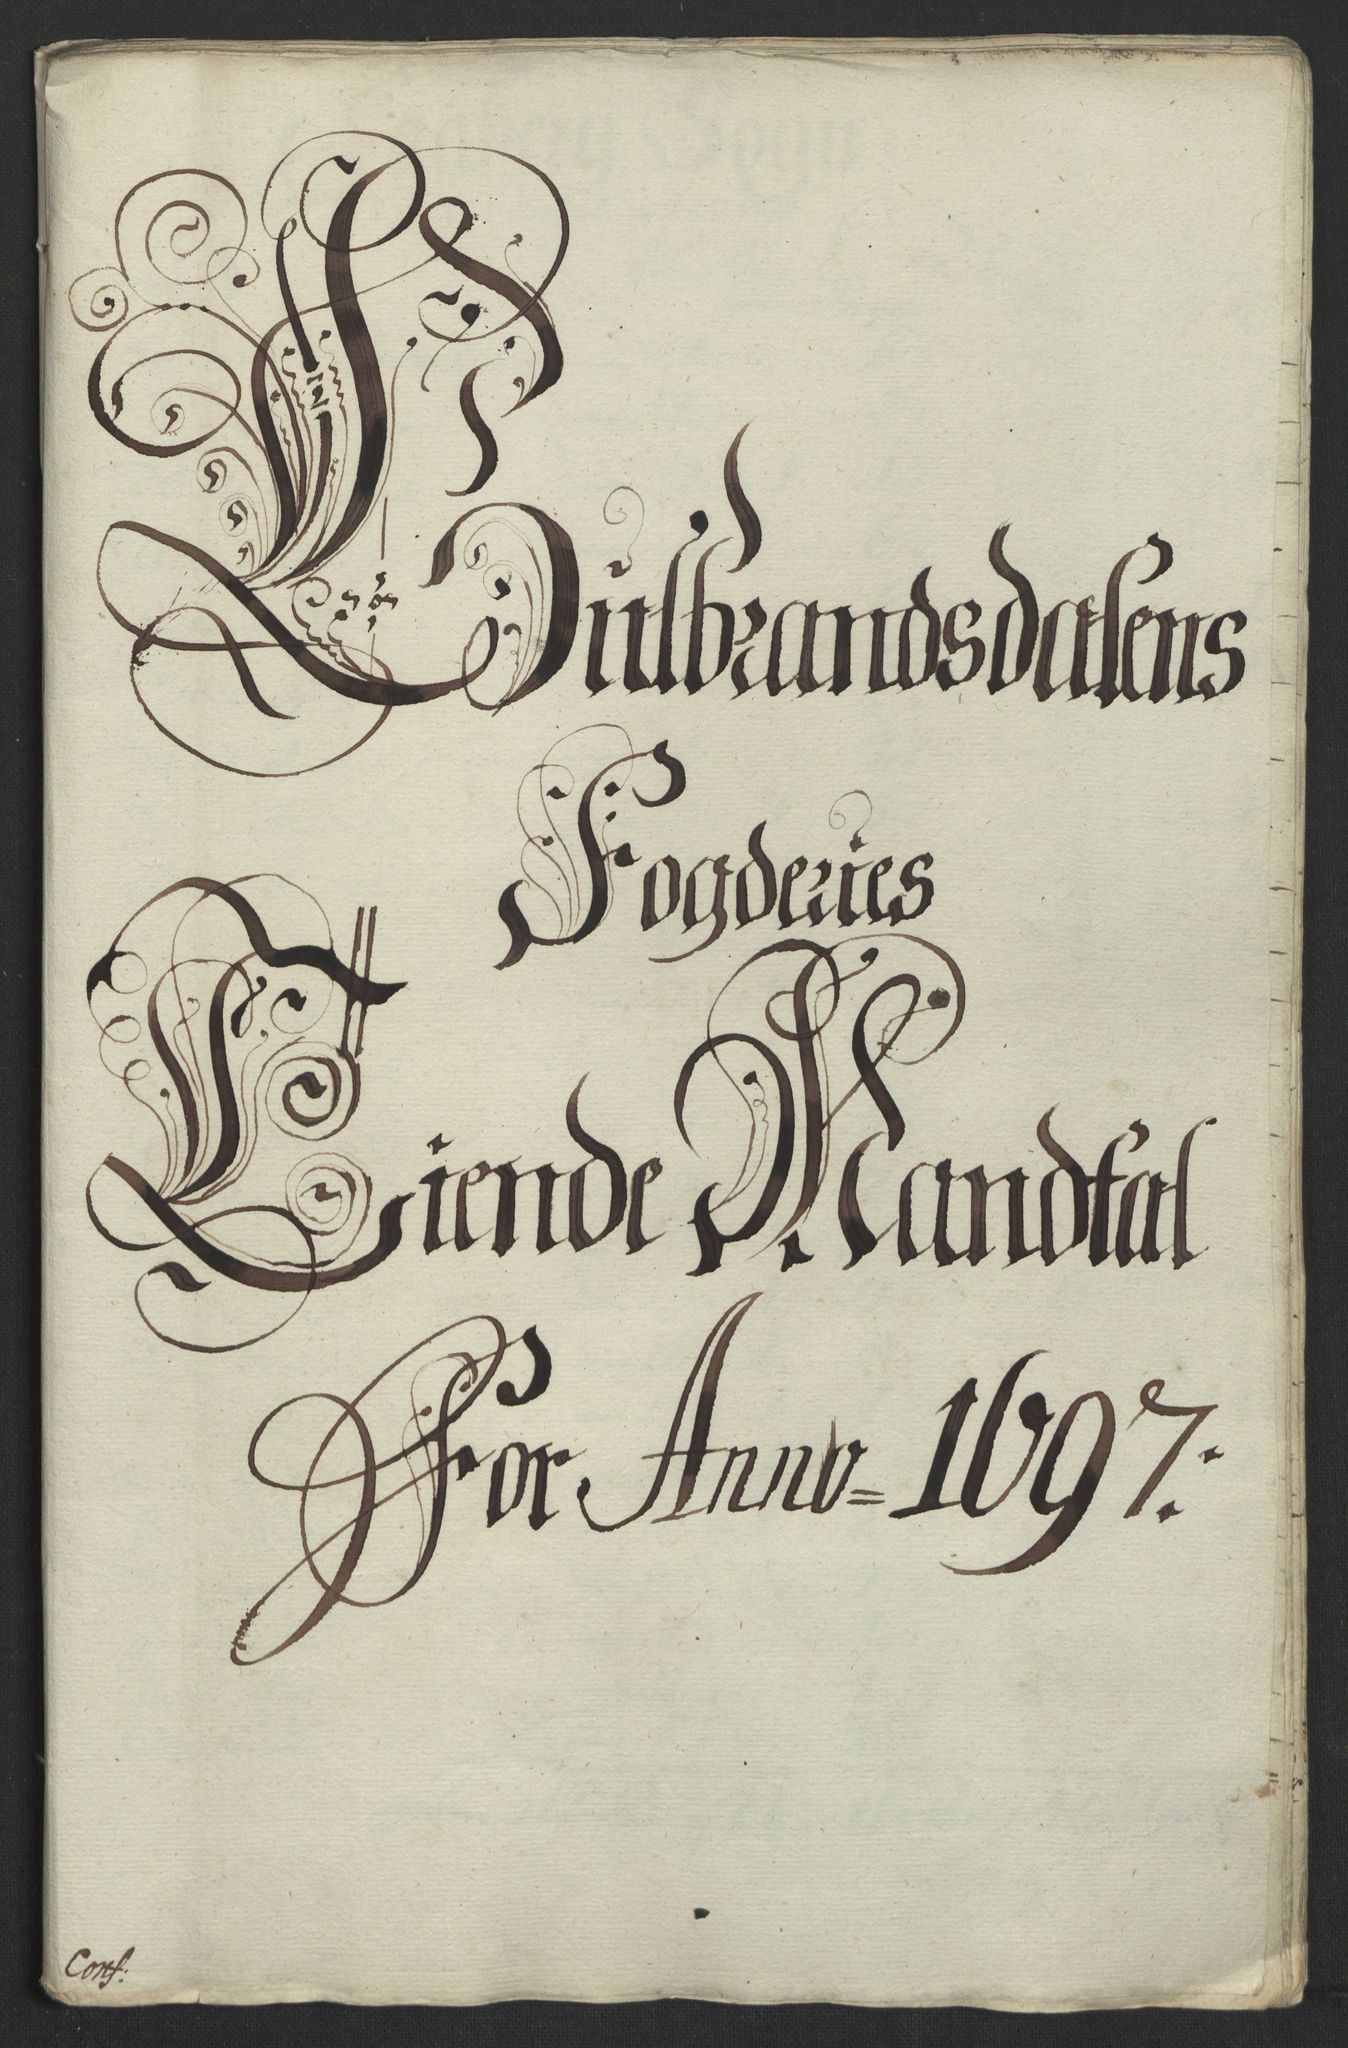 Gulbrandsdalens
Fogderies
Tiende Mandtal
For Anno= 1697.
Conf: